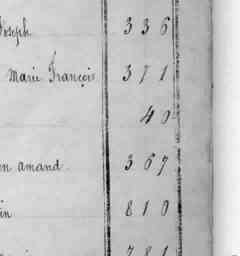 Joseph 336
Marie François 371
40
en amand. 367
in 810
781